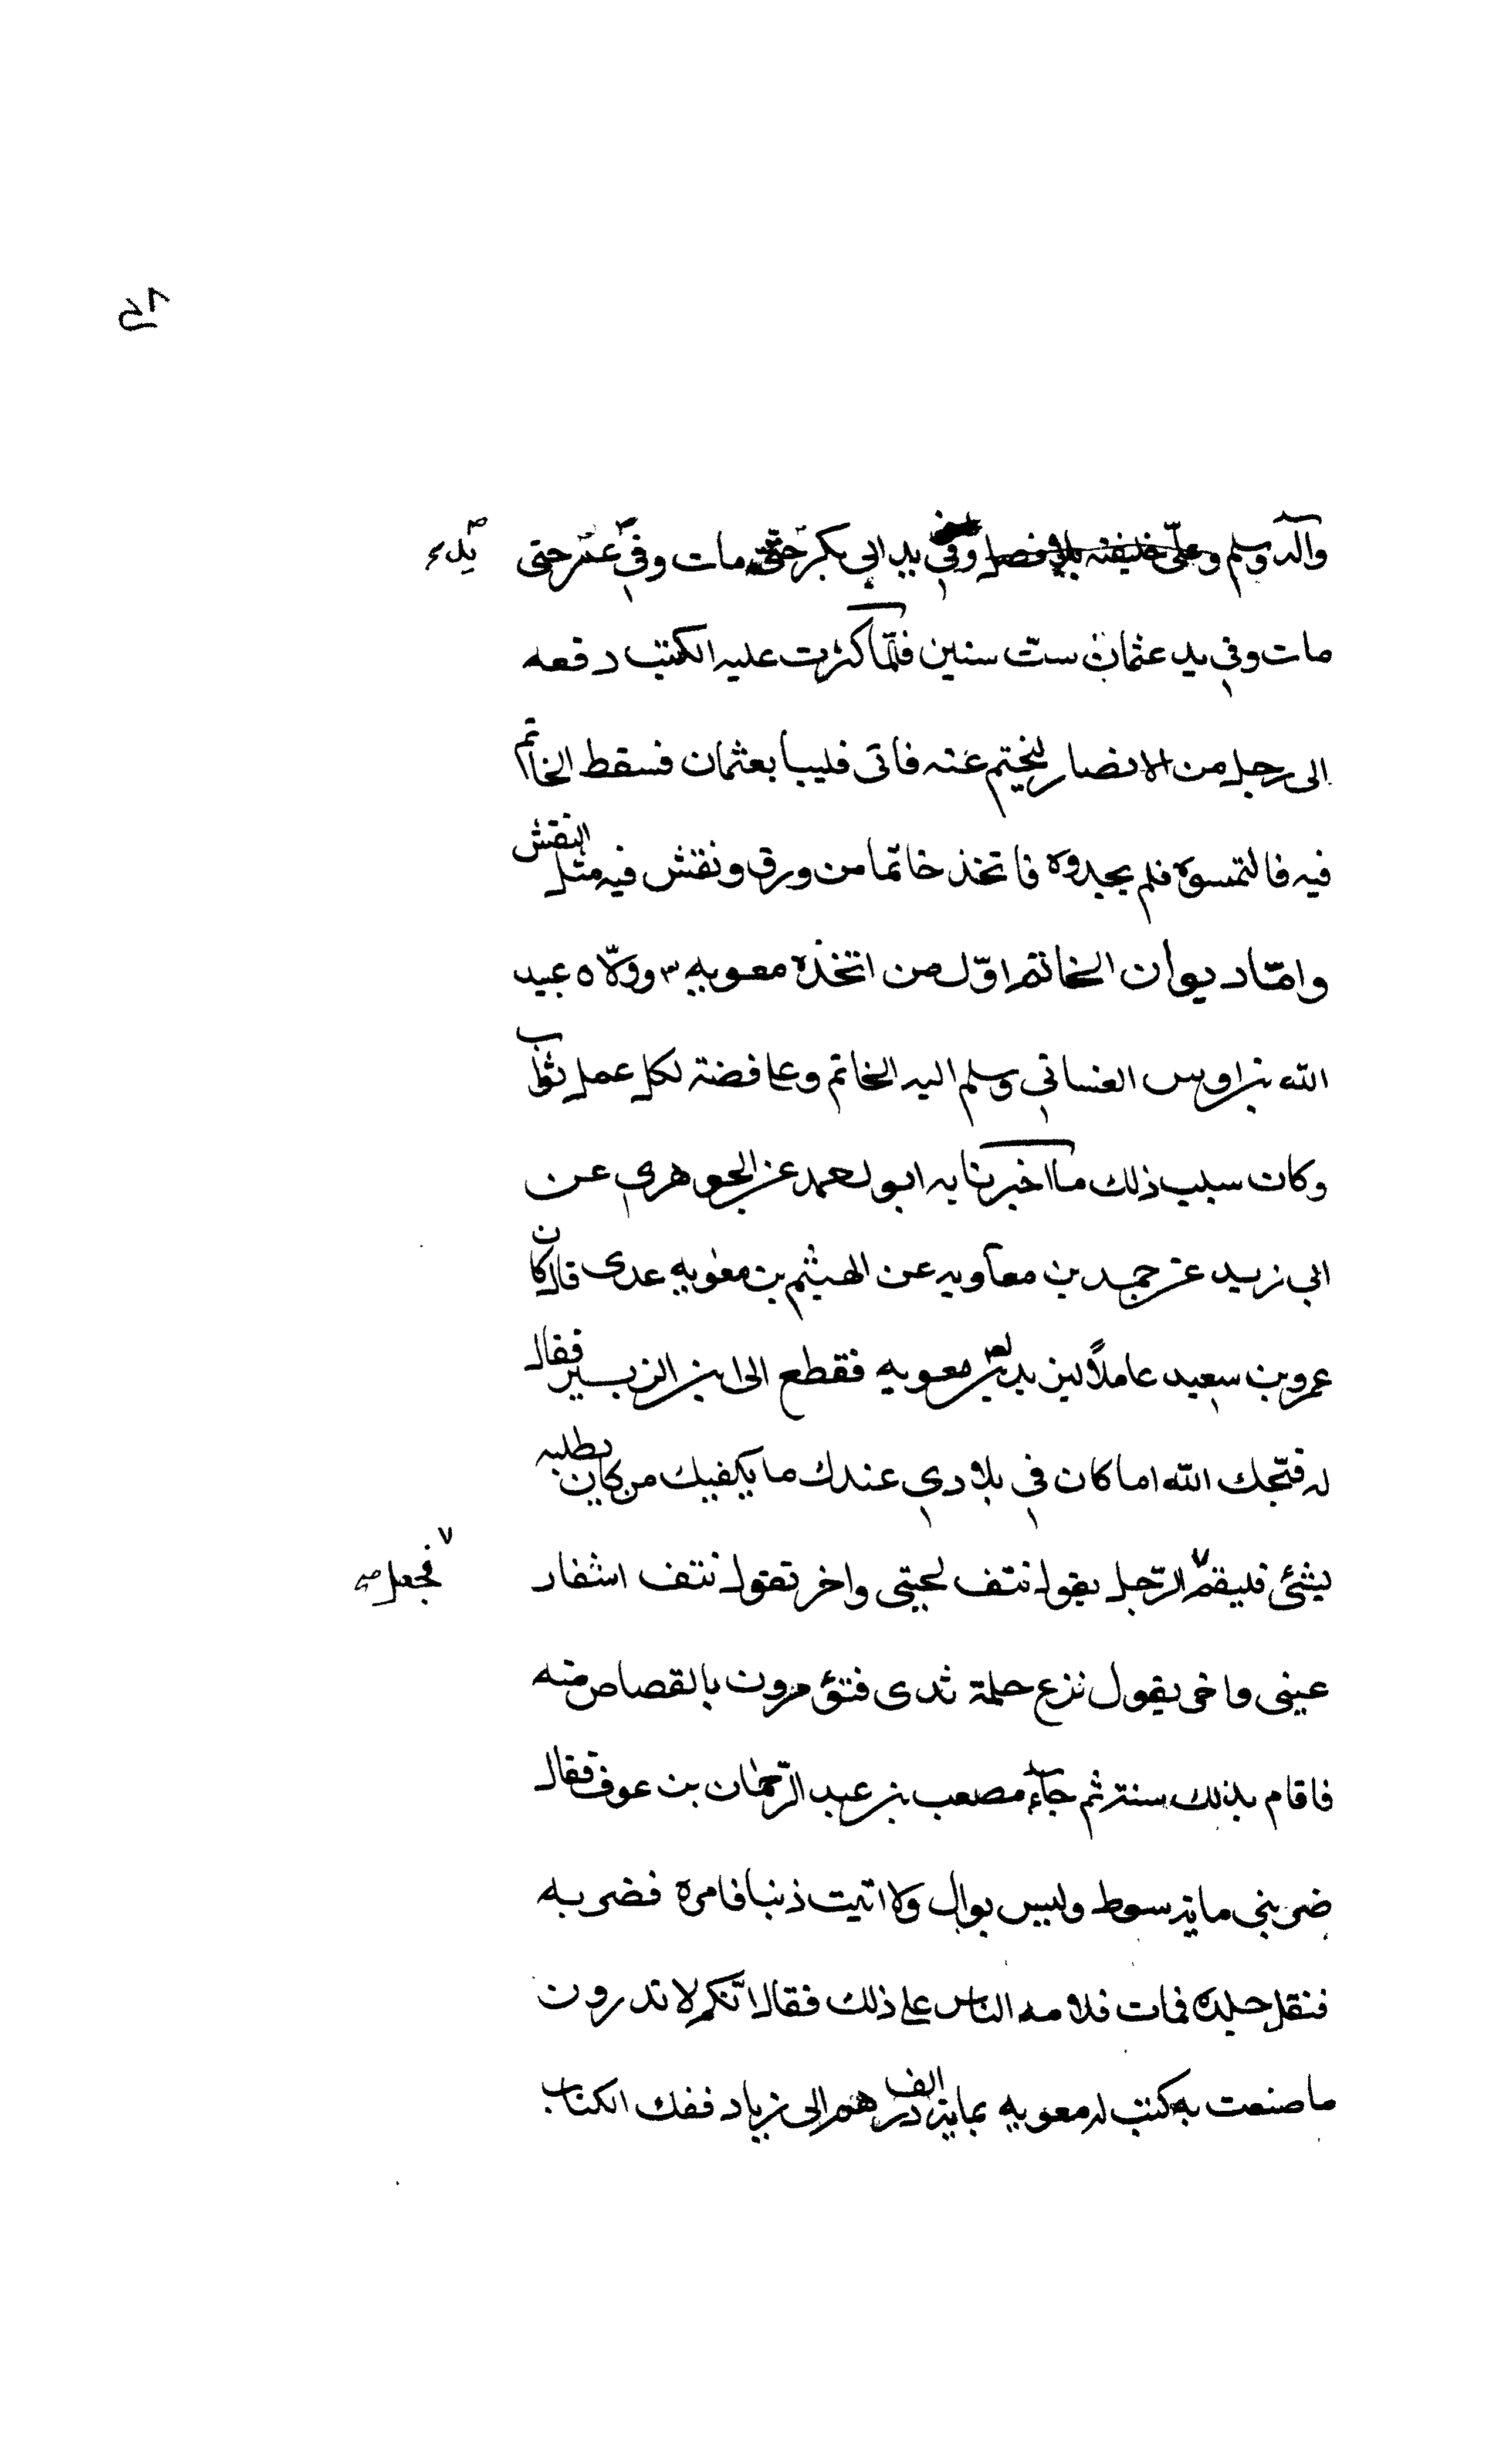 وآله وسلم وعلي خليفته بلا فصل وفي يد ابي بكر حتى مات وفي عمر حتى
يد
مات وفي يد عثمان ستّ سنين فلمّا كثرت عليه الكتب دفعه
الى رجل من الانصار ليختم عنه فاتى قليبا بعثمان فسقط الخاتم
فيه فالتمسوه فلم يجدوه فاتخذ خاتما من ورق ونقش فيه مثل النقش
وامّا ديوان الخاتم اوّل من اتخذه معويه وولّاه عبيد
الله بن اوس الغساني وسلم اليه الخاتم وعلي فضته لكل عمل ثواب
وكان سبب ذلك ما اخبرنا به ابو عن الجوهري عن
ابي زيد عن حميد بن معاويه عن الهيثم بن معويه عدى قال كان
عمرو بن سعيد عاملاً ليزيد بن معويه فقطع الى ابن الزبير فقال
له قبّحك الله اما كان في بلادي عندك ما يكفيك من كان يطلبه
بشئ فليقم الرّجل يقول نتف لحيتى واخر تقول نتف اشفار
فجعل
عينى واخر يقول نزع حلمة ثدى فتؤمرون بالقصاص منه
فاقام بذلك سنة ثم جآء مصعب بن عبد الرّحمان بن عوف فقال
ضربنى ماية سوط وليس بوال ولا اتيت ذنبا فامره فضربه
فنقل جلده فمات فلامه الناس على ذلك فقال انّكم لا تدرون
ما صنعت به كتب له معويه بماية الف درهم الى زياد ففك الكتاب